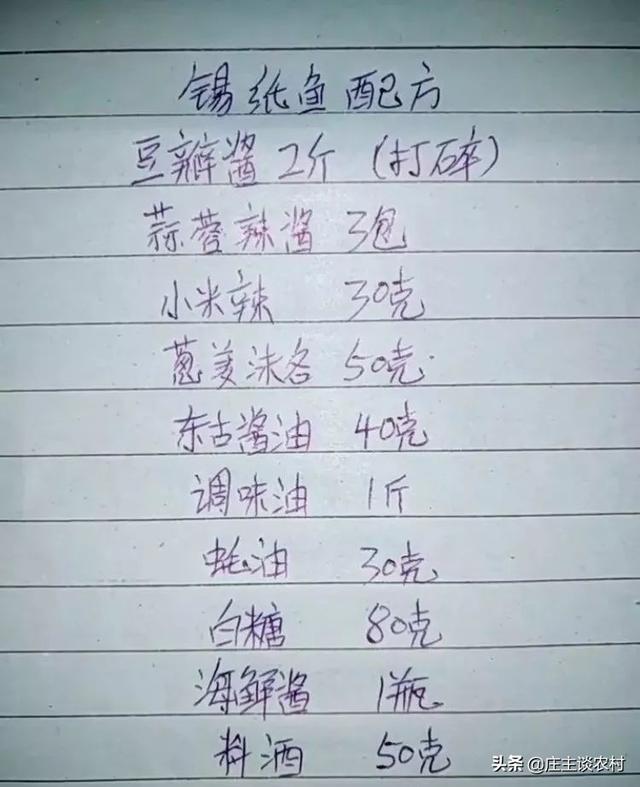 锡纸鱼配方
豆瓣酱 2斤 (打碎)
蒜蓉辣酱 3包
小米辣 30克
葱姜沫各 50克
东古酱油 40克
调味油 1斤
蚝油 30克
白糖 80克
海鲜酱 1瓶
料酒 50克
头条 @庄主谈农村